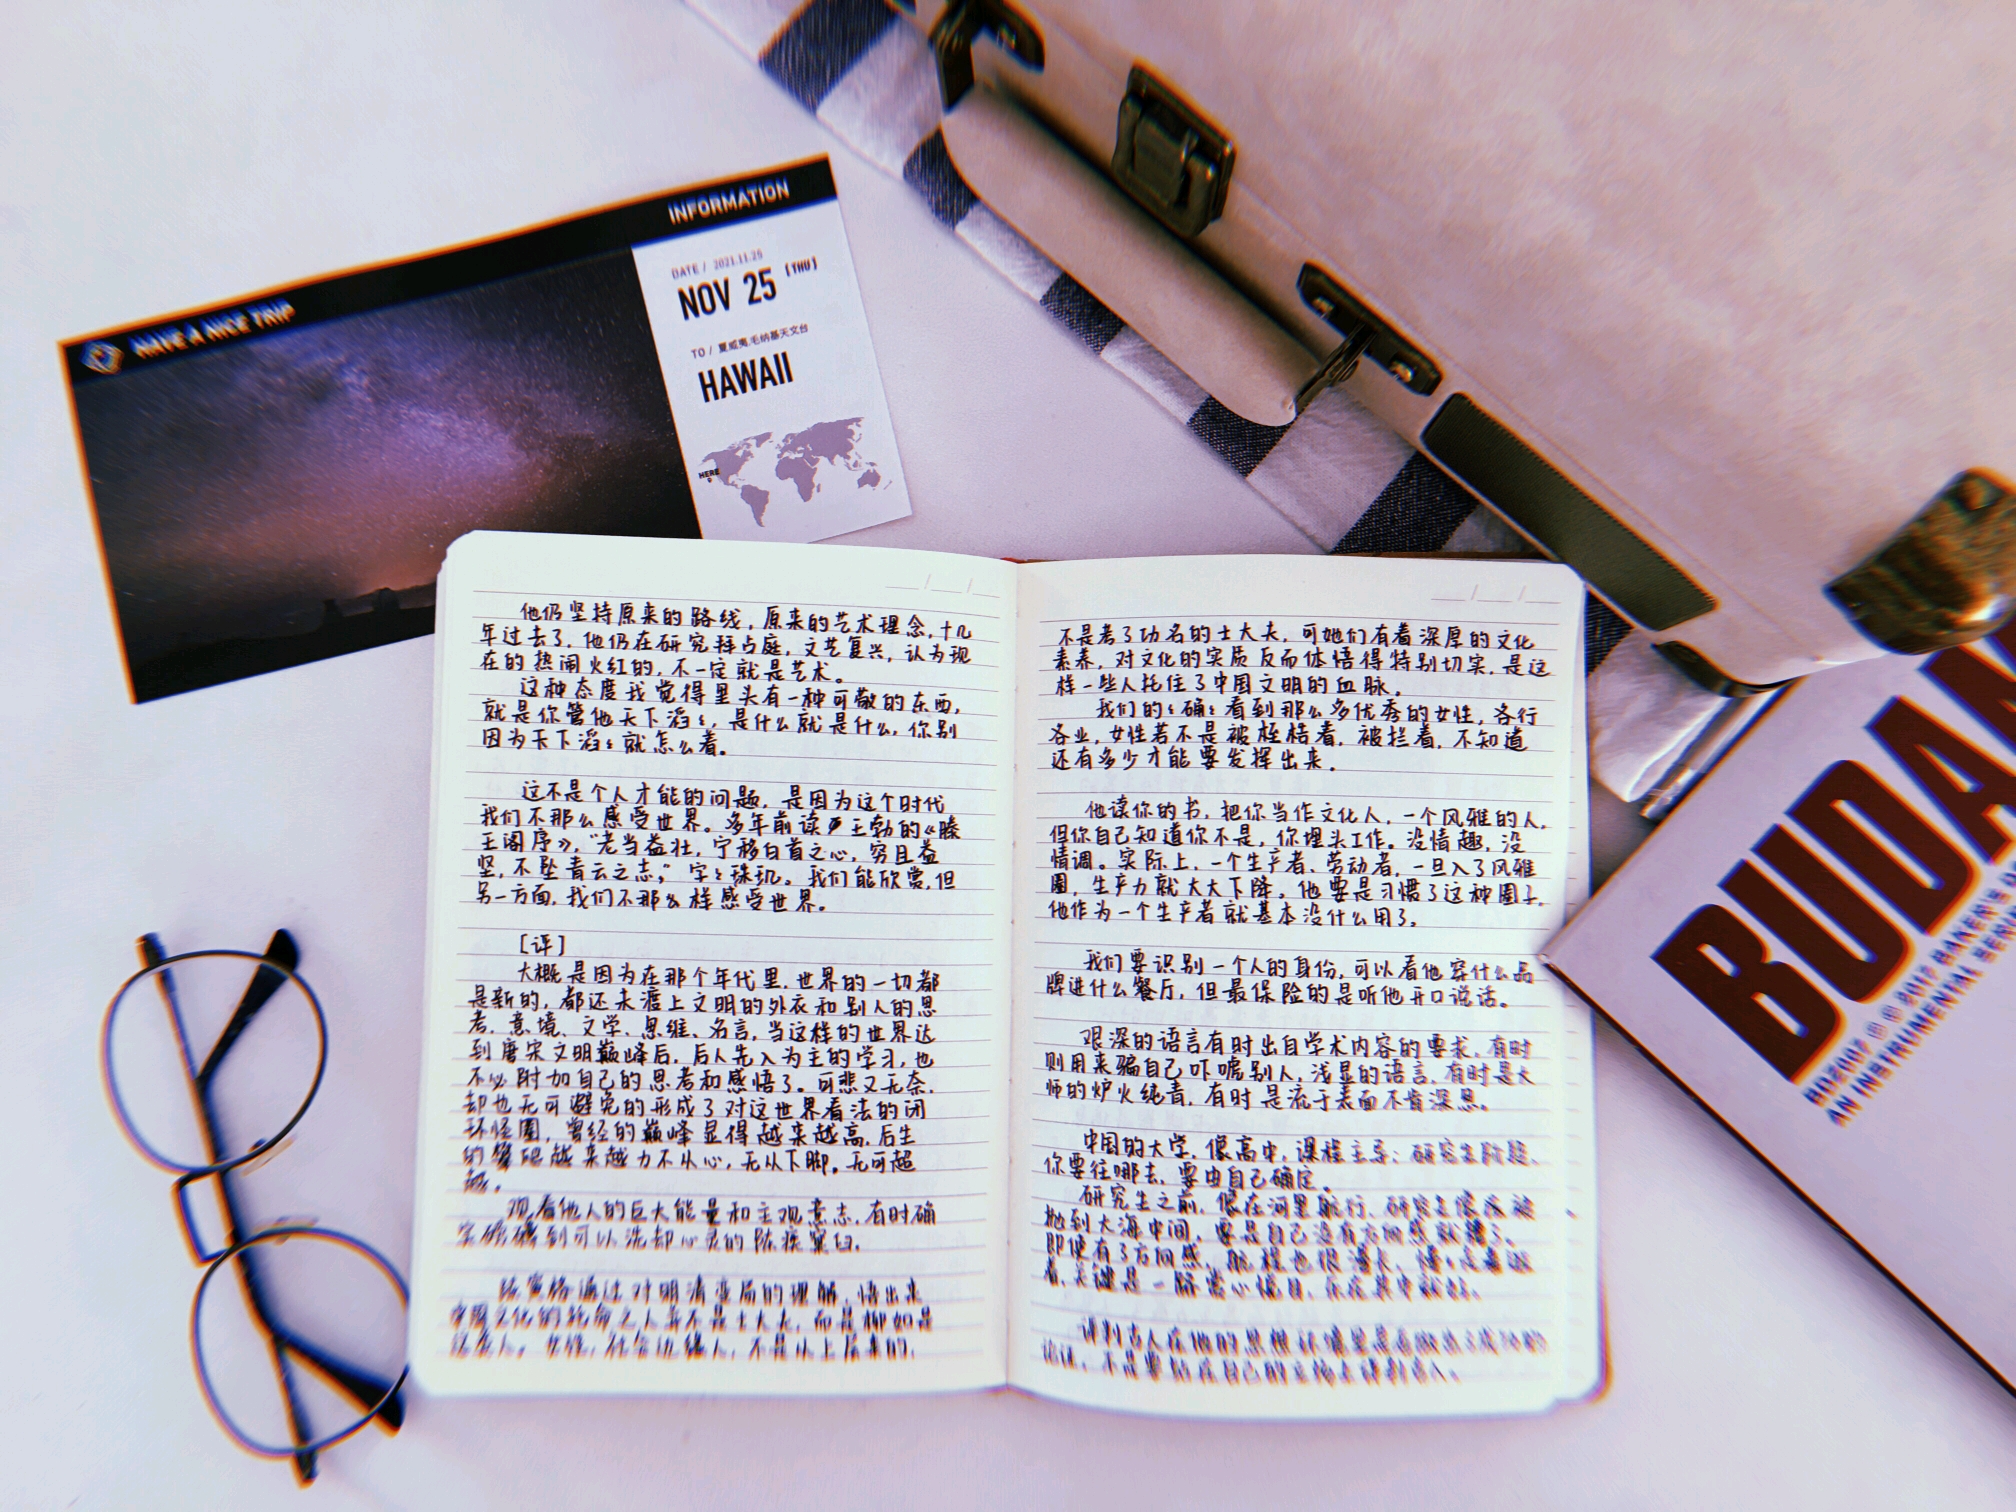 HAVE A NICE TRIP
INFORMATION
DATE / 2021.11.25
NOV 25 [THU]
TO / 夏威夷,毛纳基天文台
HAWAII
HERE
他仍坚持原来的路线,原来的艺术理念,十几
年过去了,他仍在研究拜占庭,文艺复兴,认为现
在的热闹火红的,不一定就是艺术。
这种态度我觉得里头有一种可敬的东西,
就是你管他天下滔滔,是什么就是什么,你别
因为天下滔滔就怎么着。
这不是个人才能的问题,是因为这个时代
我们不那么感受世界。多年前读王勃的《滕
王阁序》,“老当益壮,宁移白首之心,穷且益
坚,不坠青云之志;”字字珠玑。我们能欣赏,但
另一方面,我们不那么样感受世界。
[评]
大概是因为在那个年代里,世界的一切都
是新的,都还未渡上文明的外衣和别人的思
考、意境、文学、思维、名言,当这样的世界达
到唐宋文明巅峰后,后人先入为主的学习,也
不必附加自己的思考和感悟了。可悲又无奈,
却也无可避免的形成了对这世界看法的闭
环怪圈,曾经的巅峰显得越来越高,后生
的笔越来越力不从心,无从下脚,无可超
越。
观看他人的巨大能量和主观意志,有时确
到可以洗却心灵的陈疾窠臼。
陈寅恪通过对明清变局的理解,悟出来
中国文化的托命之人并不是士大夫,而是柳如是
这类人。女性,社会边缘人,不是从上层来的,
不是考了功名的士大夫,可她们有着深厚的文化
素养,对文化的实质反而体悟得特别切实,是这
样一些人托住了中国文明的血脉。
我们的的确确看到那么多优秀的女性,各行
各业,女性若不是被桎梏着,被拦着,不知道
还有多少才能要发挥出来。
他读你的书,把你当作文化人,一个风雅的人,
但你自己知道你不是,你埋头工作。没情趣,没
情调。实际上,一个生产者、劳动者,一旦入了风雅
圈,生产力就大大下降。他要是习惯了这种圈子,
他作为一个生产者就基本没什么用了。
我们要识别一个人的身份,可以看他穿什么品
牌进什么餐厅,但最保险的是听他开口说话。
艰深的语言有时出自学术内容的要求,有时
则用来骗自己吓唬别人,浅显的语言,有时是大
师的炉火纯青,有时是流于表面不肯深思。
中国的大学,像高中,课程主导;研究生阶段,
你要往哪去,要由自己确定。
研究生之前,像在河里航行,研究生像被
抛到大海中间,要是自己没有方向感就糟了。
即使有了方向感,航程也很漫长,慢慢走着逛
着,关键是一路赏心悦目,乐在其中就好。
评判古人在他的思想环境里是否做出了成功的
论证,不是要站在自己的立场上评判古人。
BUDA
BD2007 2017 BAKER'S
AN INSTRUMENTAL SER